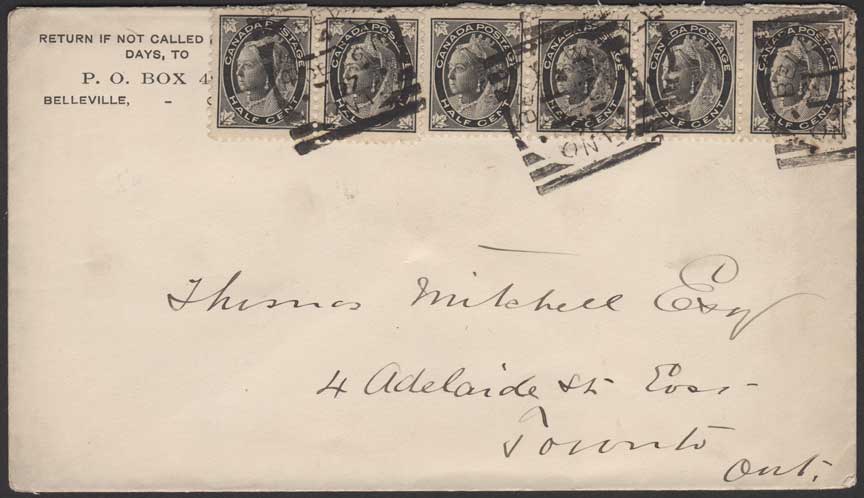 RETURN IF NOT CALLED
DAYS, TO
P. O. BOX 4
BELLEVILLE, -
CANADA POSTAGE
HALF CENT
CANADA POSTAGE
HALF CENT
CANADA POSTAGE
HALF CENT
CANADA POSTAGE
HALF CENT
CANADA POSTAGE
HALF CENT
CANADA POSTAGE
HALF CENT
Thomas Mitchell Esq
4 Adelaide St. East
Toronto
Ont.